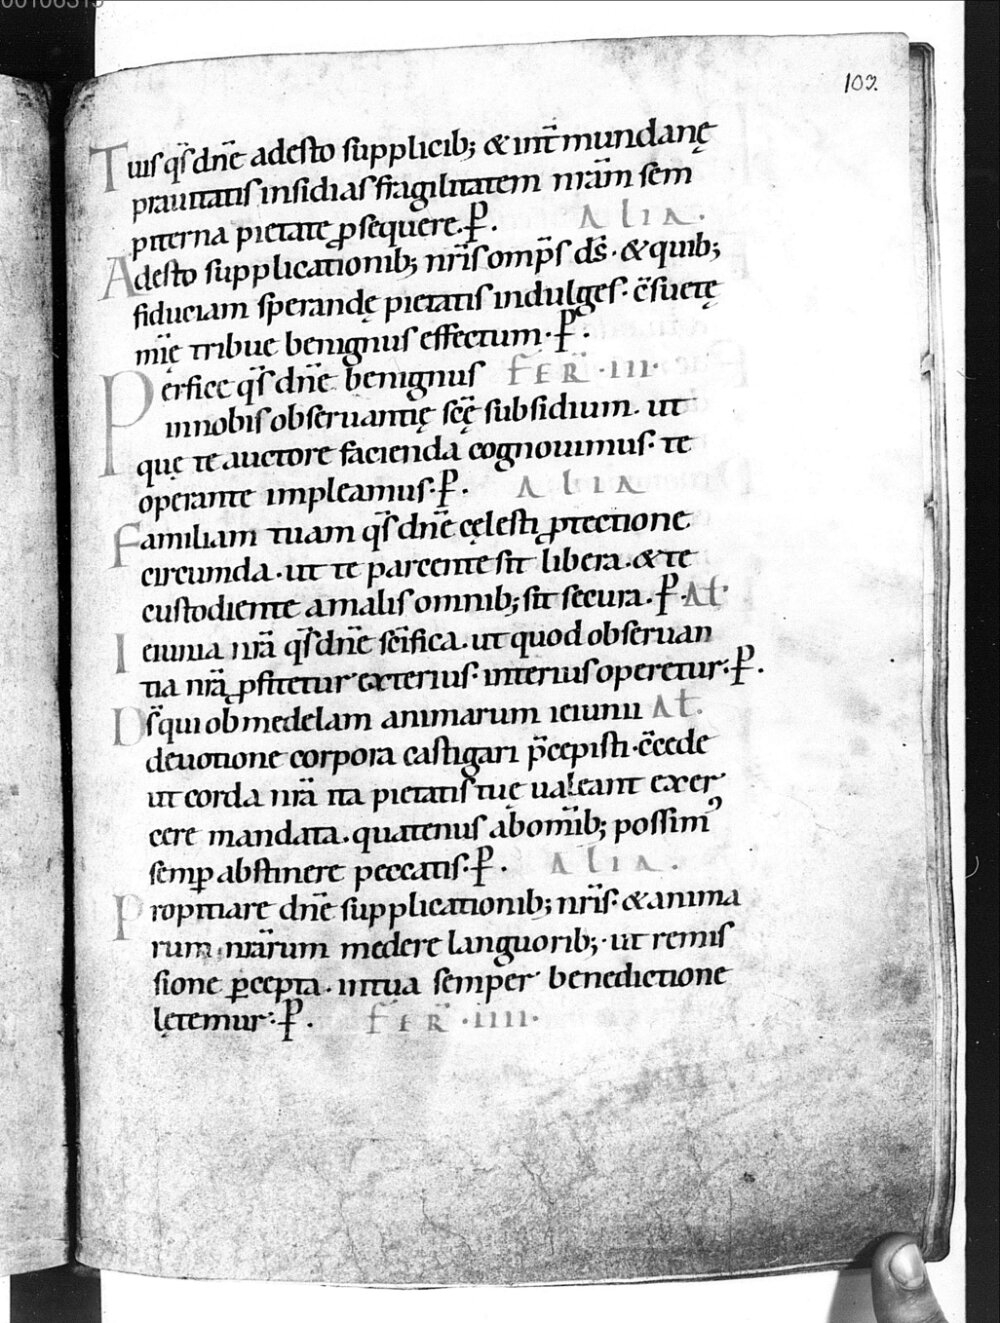 103.
Tuis qs̄ dn̄e adesto supplicib; & int̄ mundanę
prauitatis insidias fragilitatem nr̄am sem
piterna pietate ꝓsequere. P̄.  ALIA.
Adesto supplicationib; nr̄is omp̄s ds̄. & quib;
fiduciam sperandę pietatis indulges. c̄suetę
mīę tribue benignus effectum. P̄.
Perfice qs̄ dn̄e benignus  FER̄. III.
in nobis obseruantię sc̄ę subsidium. ut
quę te auctore facienda cognouimus. te
operante impleamus. P̄.  ALIA
Familiam tuam qs̄ dn̄e cęlesti ꝓtectione
circumda. ut te parcente sit libera. & te
custodiente a malis omnib; sit secura. P̄. At
Ieiunia nr̄a qs̄ dn̄e sc̄ifica. ut quod obseruan
tia nr̄a ꝓfitetur exterius. interius operetur. P̄.
Ds̄ qui ob medelam animarum ieiunii At.
deuotione corpora castigari p̄cepisti. c̄cede
ut corda nr̄a ita pietatis tuę ualeant exer
cere mandata. quatenus ab om̄ib; possimꝰ
semꝑ abstinere peccatis. P̄.  ALIA.
Propitiare dn̄e supplicationib; nr̄is. & anima
rum nr̄arum medere languorib;. ut remis
sione ꝑcepta. in tua semper benedictione
lętemur. P̄.  FER̄. IIII.